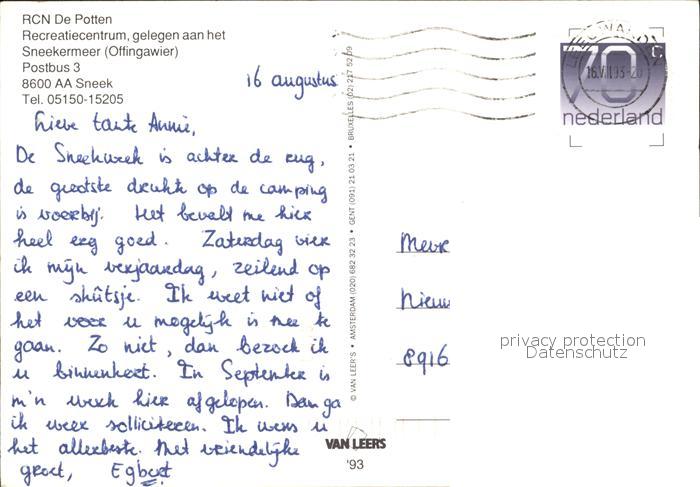 RCN De Potten
Recreatiecentrum, gelegen aan het
Sneekermeer (Offingawier)
Postbus 3
8600 AA Sneek
Tel. 05150-15205
16 augustus
Lieve tante Annie,
De Sneekweek is achter de rug,
de grootste drukte op de camping
is voorbij. Het bevalt me hier
heel erg goed. Zaterdag vier
ik mijn verjaardag, zeilend op
een skûtsje. Ik weet niet of
het voor u mogelijk is mee te
gaan. Zo niet, dan bezoek ik
u binnenkort. In September is
m'n werk hier afgelopen. Dan ga
ik weer solliciteren. Ik wens u
het allerbeste. Met vriendelijke
groet, Egbert
© VAN LEER'S • AMSTERDAM (020) 682 32 23 • GENT (091) 21 03 21 • BRUXELLES (02) 217 52 09
VAN LEERS
'93
70 c
nederland
Mevr
Nieuw
8916
privacy protection
Datenschutz